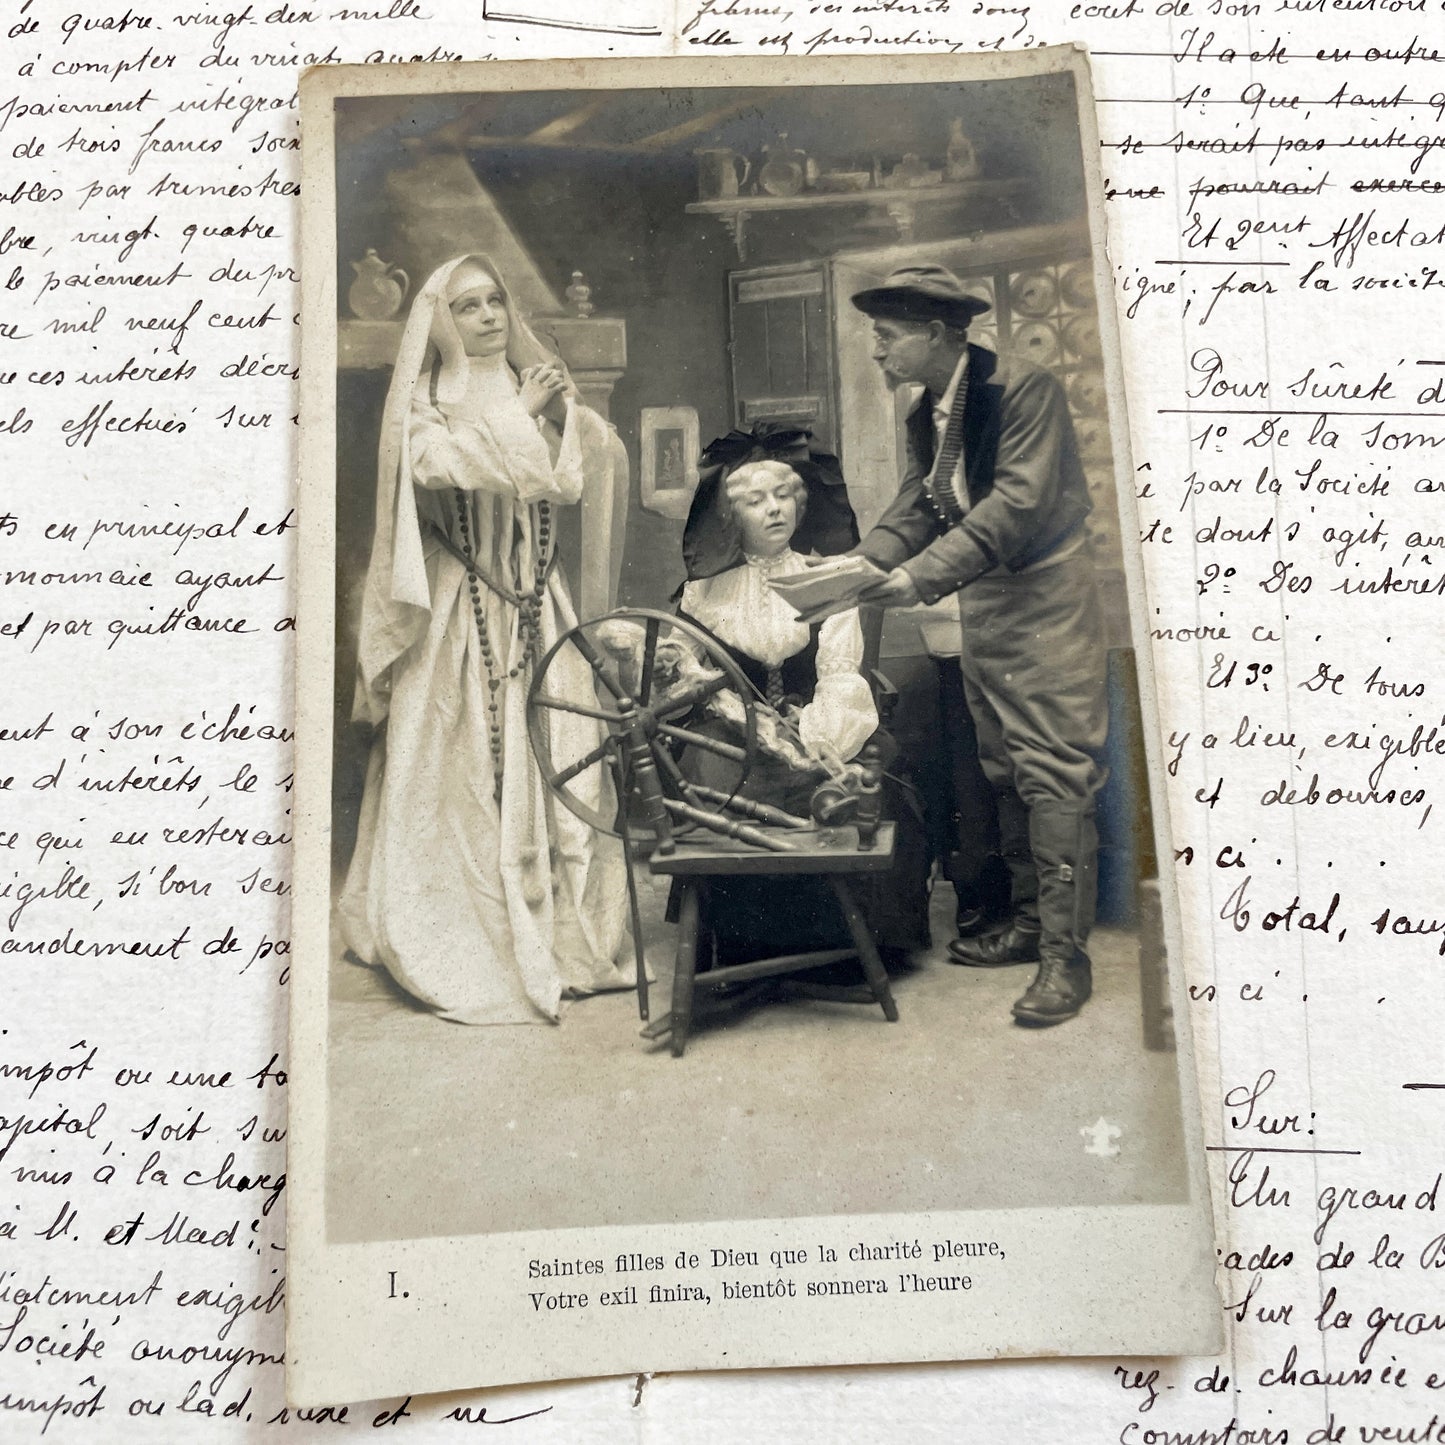 de quatre. vingt-dix mille
à compter du vingt quatre
paiement intégral
de trois francs soix
ables par trimestres
bre, vingt. quatre
le paiement du pr
re mil neuf cent
ue ces intérêts décr
els effectués sur
ts en principal et
monnaie ayant
et par quittance d
ent à son échéan
e d'intérêts, le s
ce qui en resterai
xigible, si bon sem
andement de pa
impôt ou une ta
apital, soit su
mis à la charg
à M. et Mad?.
diatement exigib
Société anonyme
impôt ou lad. et
elle est production et de
écrit de son intention
Il a été en outre
1º Que, tant q
se serait pas intégr
pourrait exerce
Et 2ent Affectat
igné, par la société
Pour sûreté d
1º De la som
par la Société an
te dont s'agit, au
2º Des intérêt
moire ci . .
Et 3º. De tous
y a lieu, exigible
et débourses,
s ci . . .
Total, sauf
es ci . .
Sur:
Un grand
cades de la B
Sur la gran
rez. de. chaussée e
comptoirs de vente
I.
Saintes filles de Dieu que la charité pleure,
Votre exil finira, bientôt sonnera l'heure